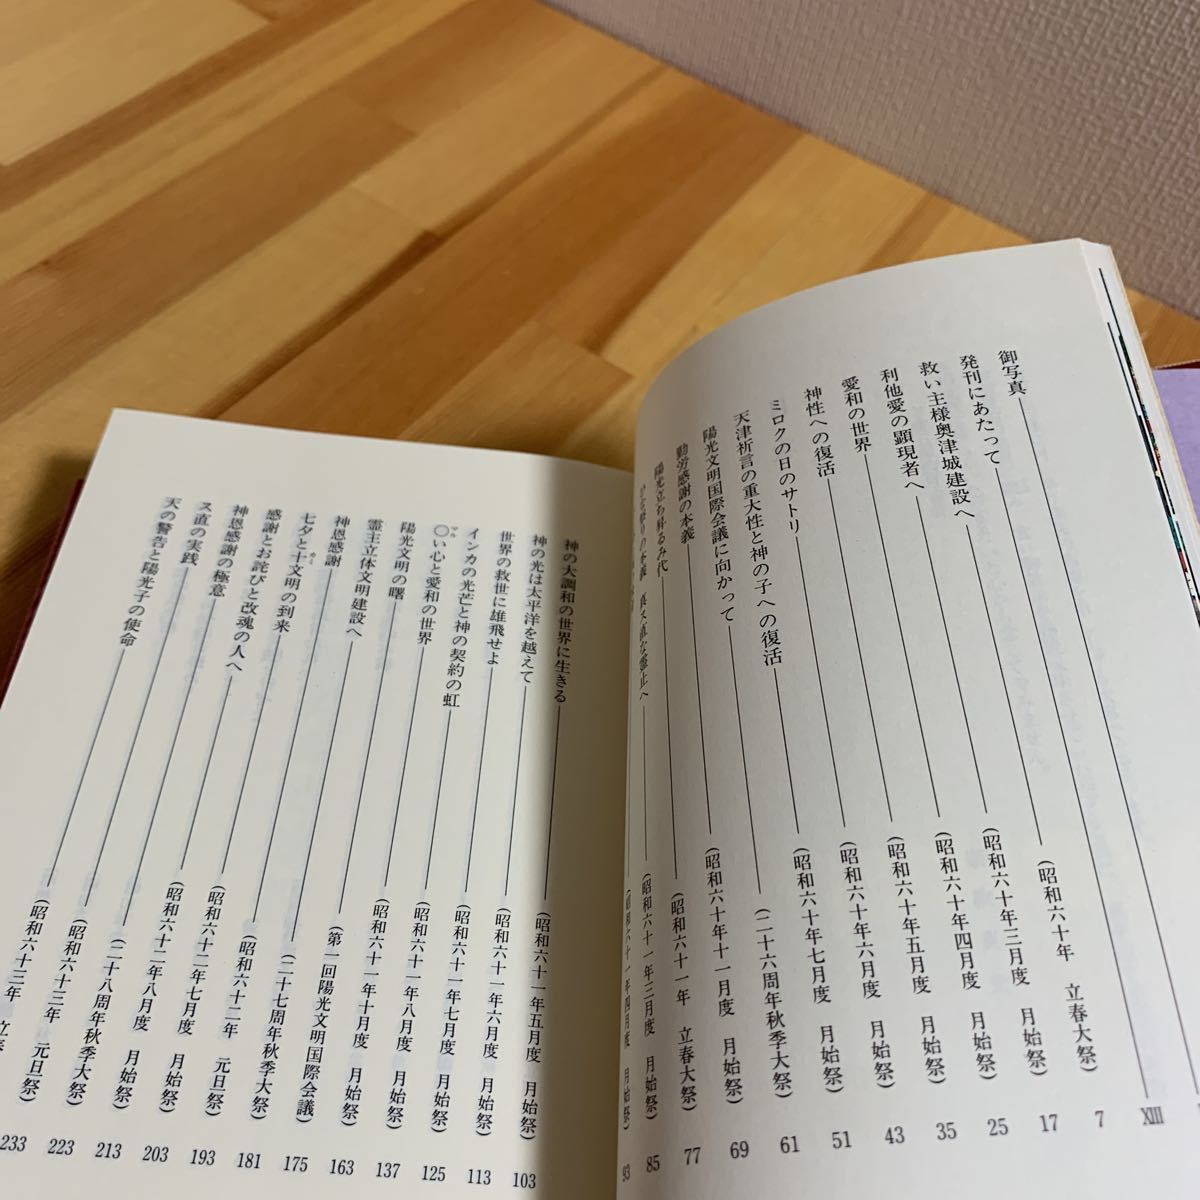 御写真
発刊にあたって XIII
救い主様奥津城建設へ (昭和六十年 立春大祭) 7
利他愛の顕現者へ (昭和六十年三月度 月始祭) 17
愛和の世界 (昭和六十年四月度 月始祭) 25
神性への復活 (昭和六十年五月度 月始祭) 35
ミロクの日のサトリ (昭和六十年六月度 月始祭) 43
天津祈言の重大性と神の子への復活 (昭和六十年七月度 月始祭) 51
陽光文明国際会議に向かって (二十六周年秋季大祭) 61
勤労感謝の本義 (昭和六十年十一月度 月始祭) 69
陽光立ち昇るみ代 (昭和六十一年 立春大祭) 77
真ス直な霊止へ (昭和六十一年三月度 月始祭) 85
(昭和六十一年四月度 月始祭) 93
神の大調和の世界に生きる (昭和六十一年五月度 月始祭) 103
神の光は太平洋を越えて (昭和六十一年六月度 月始祭) 113
世界の救世に雄飛せよ (昭和六十一年七月度 月始祭) 125
インカの光芒と神の契約の虹 (昭和六十一年八月度 月始祭) 137
〇い心と愛和の世界 (昭和六十一年十月度 月始祭) 163
陽光文明の曙 (第一回陽光文明国際会議) 175
霊主立体文明建設へ (二十七周年秋季大祭) 181
神恩感謝 (昭和六十二年 元旦祭) 193
七夕と十文明の到来 (昭和六十二年七月度 月始祭) 203
感謝とお詫びと改魂の人へ (昭和六十二年八月度 月始祭) 213
神恩感謝の極意 (二十八周年秋季大祭) 223
ス直の実践 (昭和六十三年 元旦祭) 233
天の警告と陽光子の使命 (昭和六十三年 立春